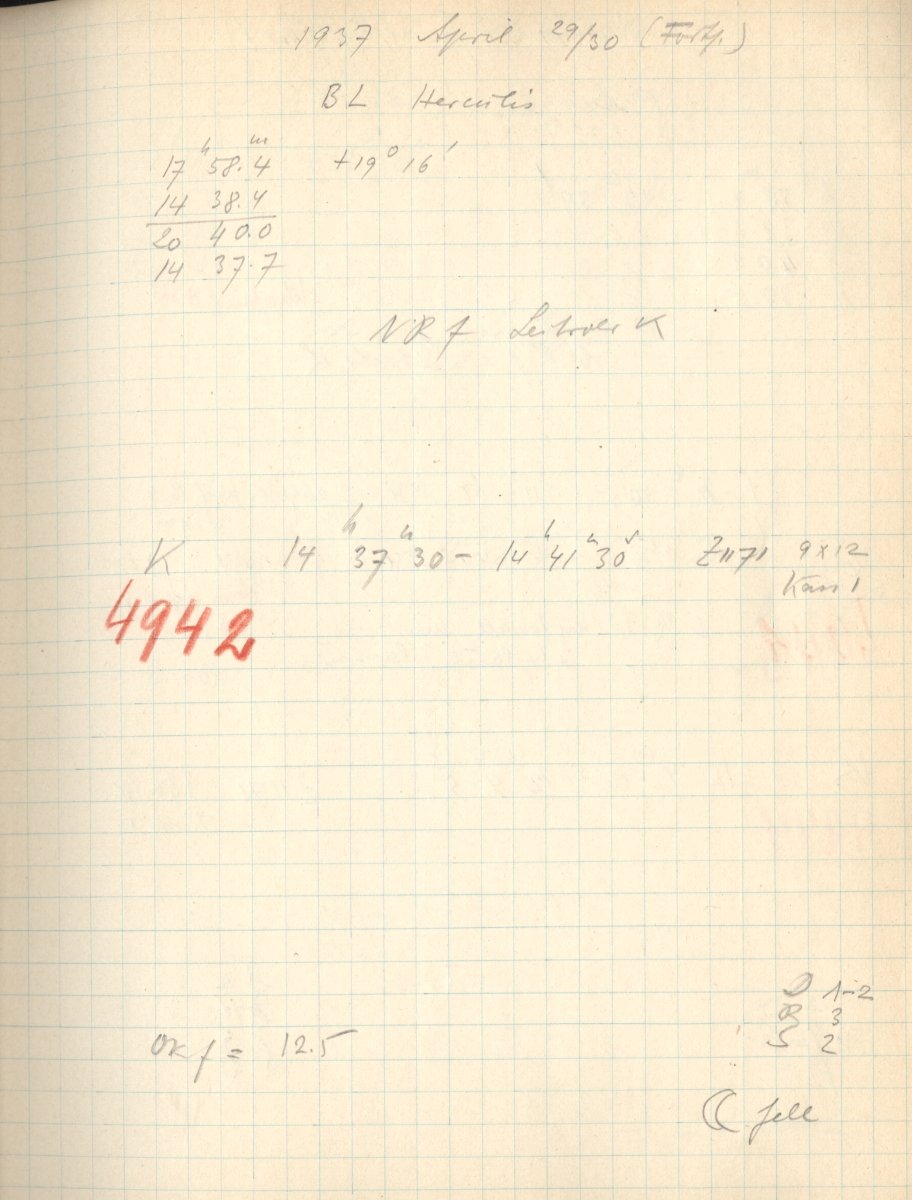 1937 April 29/30 (Forts.)
BL Herculis
17ʰ 58.4ᵐ +19° 16′
14 38.4
20 40.0
14 37.7
NRf Leitrohr K
K 14ʰ 37ᵐ 30 – 14ʰ 41ᵐ 30ˢ Z1171 9x12
Kass 1
4942
D 1-2
R 3
S 2
OKf = 12.5
☾ hell